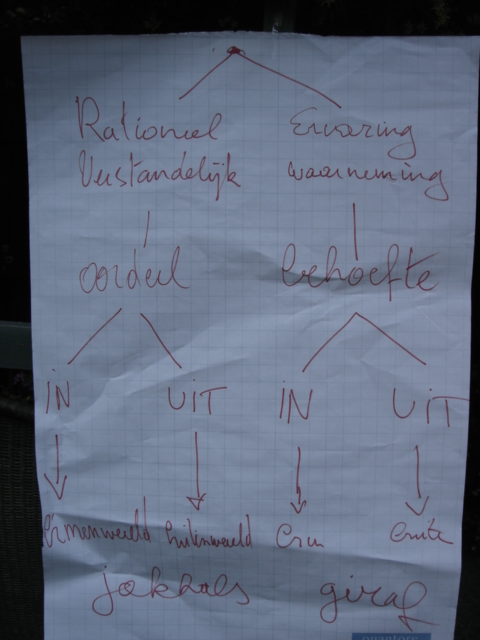 Rationeel Ervaring
Verstandelijk waarneming
oordeel behoefte
IN UIT IN UIT
Binnenwereld buitenwereld
jakhals giraf